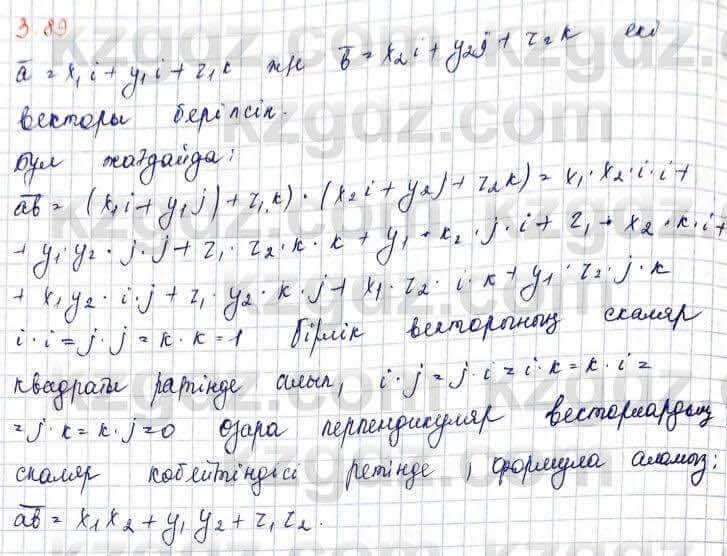 3.89
a̅ = x₁i + y₁i + z₁k және b̅ = x₂i + y₂j + z₂k екі
векторы берілсін.
Бұл жағдайда:
a̅b̅ = (x₁i + y₁j) + z₁k) · (x₂i + y₂j + z₂k) = x₁·x₂·i·i +
+ y₁·y₂·j·j + z₁·z₂·k·k + y₁·x₂·j·i + z₁·x₂·k·i +
+ x₁y₂·i·j + z₁·y₂·k·j + x₁·z₂·i·k + y₁·z₂·j·k
i·i = j·j = k·k = 1 бірлік векторының скаляр
квадраты ретінде алып, i·j = j·i = i·k = k·i =
= j·k = k·j = 0 өзара перпендикуляр векторлардың
скаляр көбейтіндісі ретінде, формула аламыз:
a̅b̅ = x₁x₂ + y₁y₂ + z₁z₂.
kzgdz.com